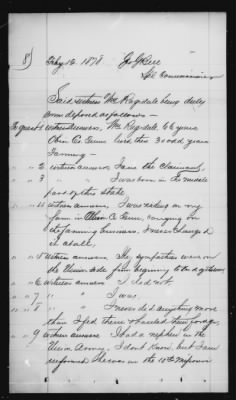 8)
Feby 16. 1878 Geo Gill
Spl Commissioner
Said witness Wm Ragsdale being duly
sworn deposed as follows –
To quest 1 witness answers, Wm Ragsdale, 66 years
Obion Co Tenn lived there 30 odd years
Farming –
" " 2 witness answers, I am the Claimant,
" " 3 " " I was born in the middle
part of this State
" " 4 witness answers, I was residing on my
farm in Obion Co Tenn, carrying on
the farming business. I never changed
it at all,
" " 5 witness answers, My sympathies were on
the Union side from beginning to end of the war
" " 6 witness answers I did not
" " 7 " " I was.
" " 8 " " I never did anything more
than I fed them & hauled them forage,
" " 9 witness answers I had a nephew in the
Union Army, I dont know, but I am
informed he was in the 10th Missouri